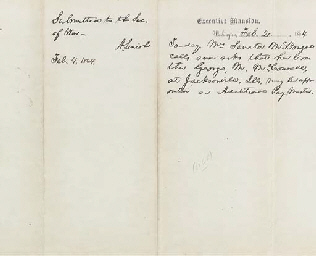 Submitted to the Sec.
of War.
A. Lincoln
Feb. 4, 1864
Executive Mansion,
Washington, Feb. 1864.
To-day Mrs. Senator
calls and asks that her
George M.
at Jacksonville, Ills, may be app-
ointed an Additional Paymaster.